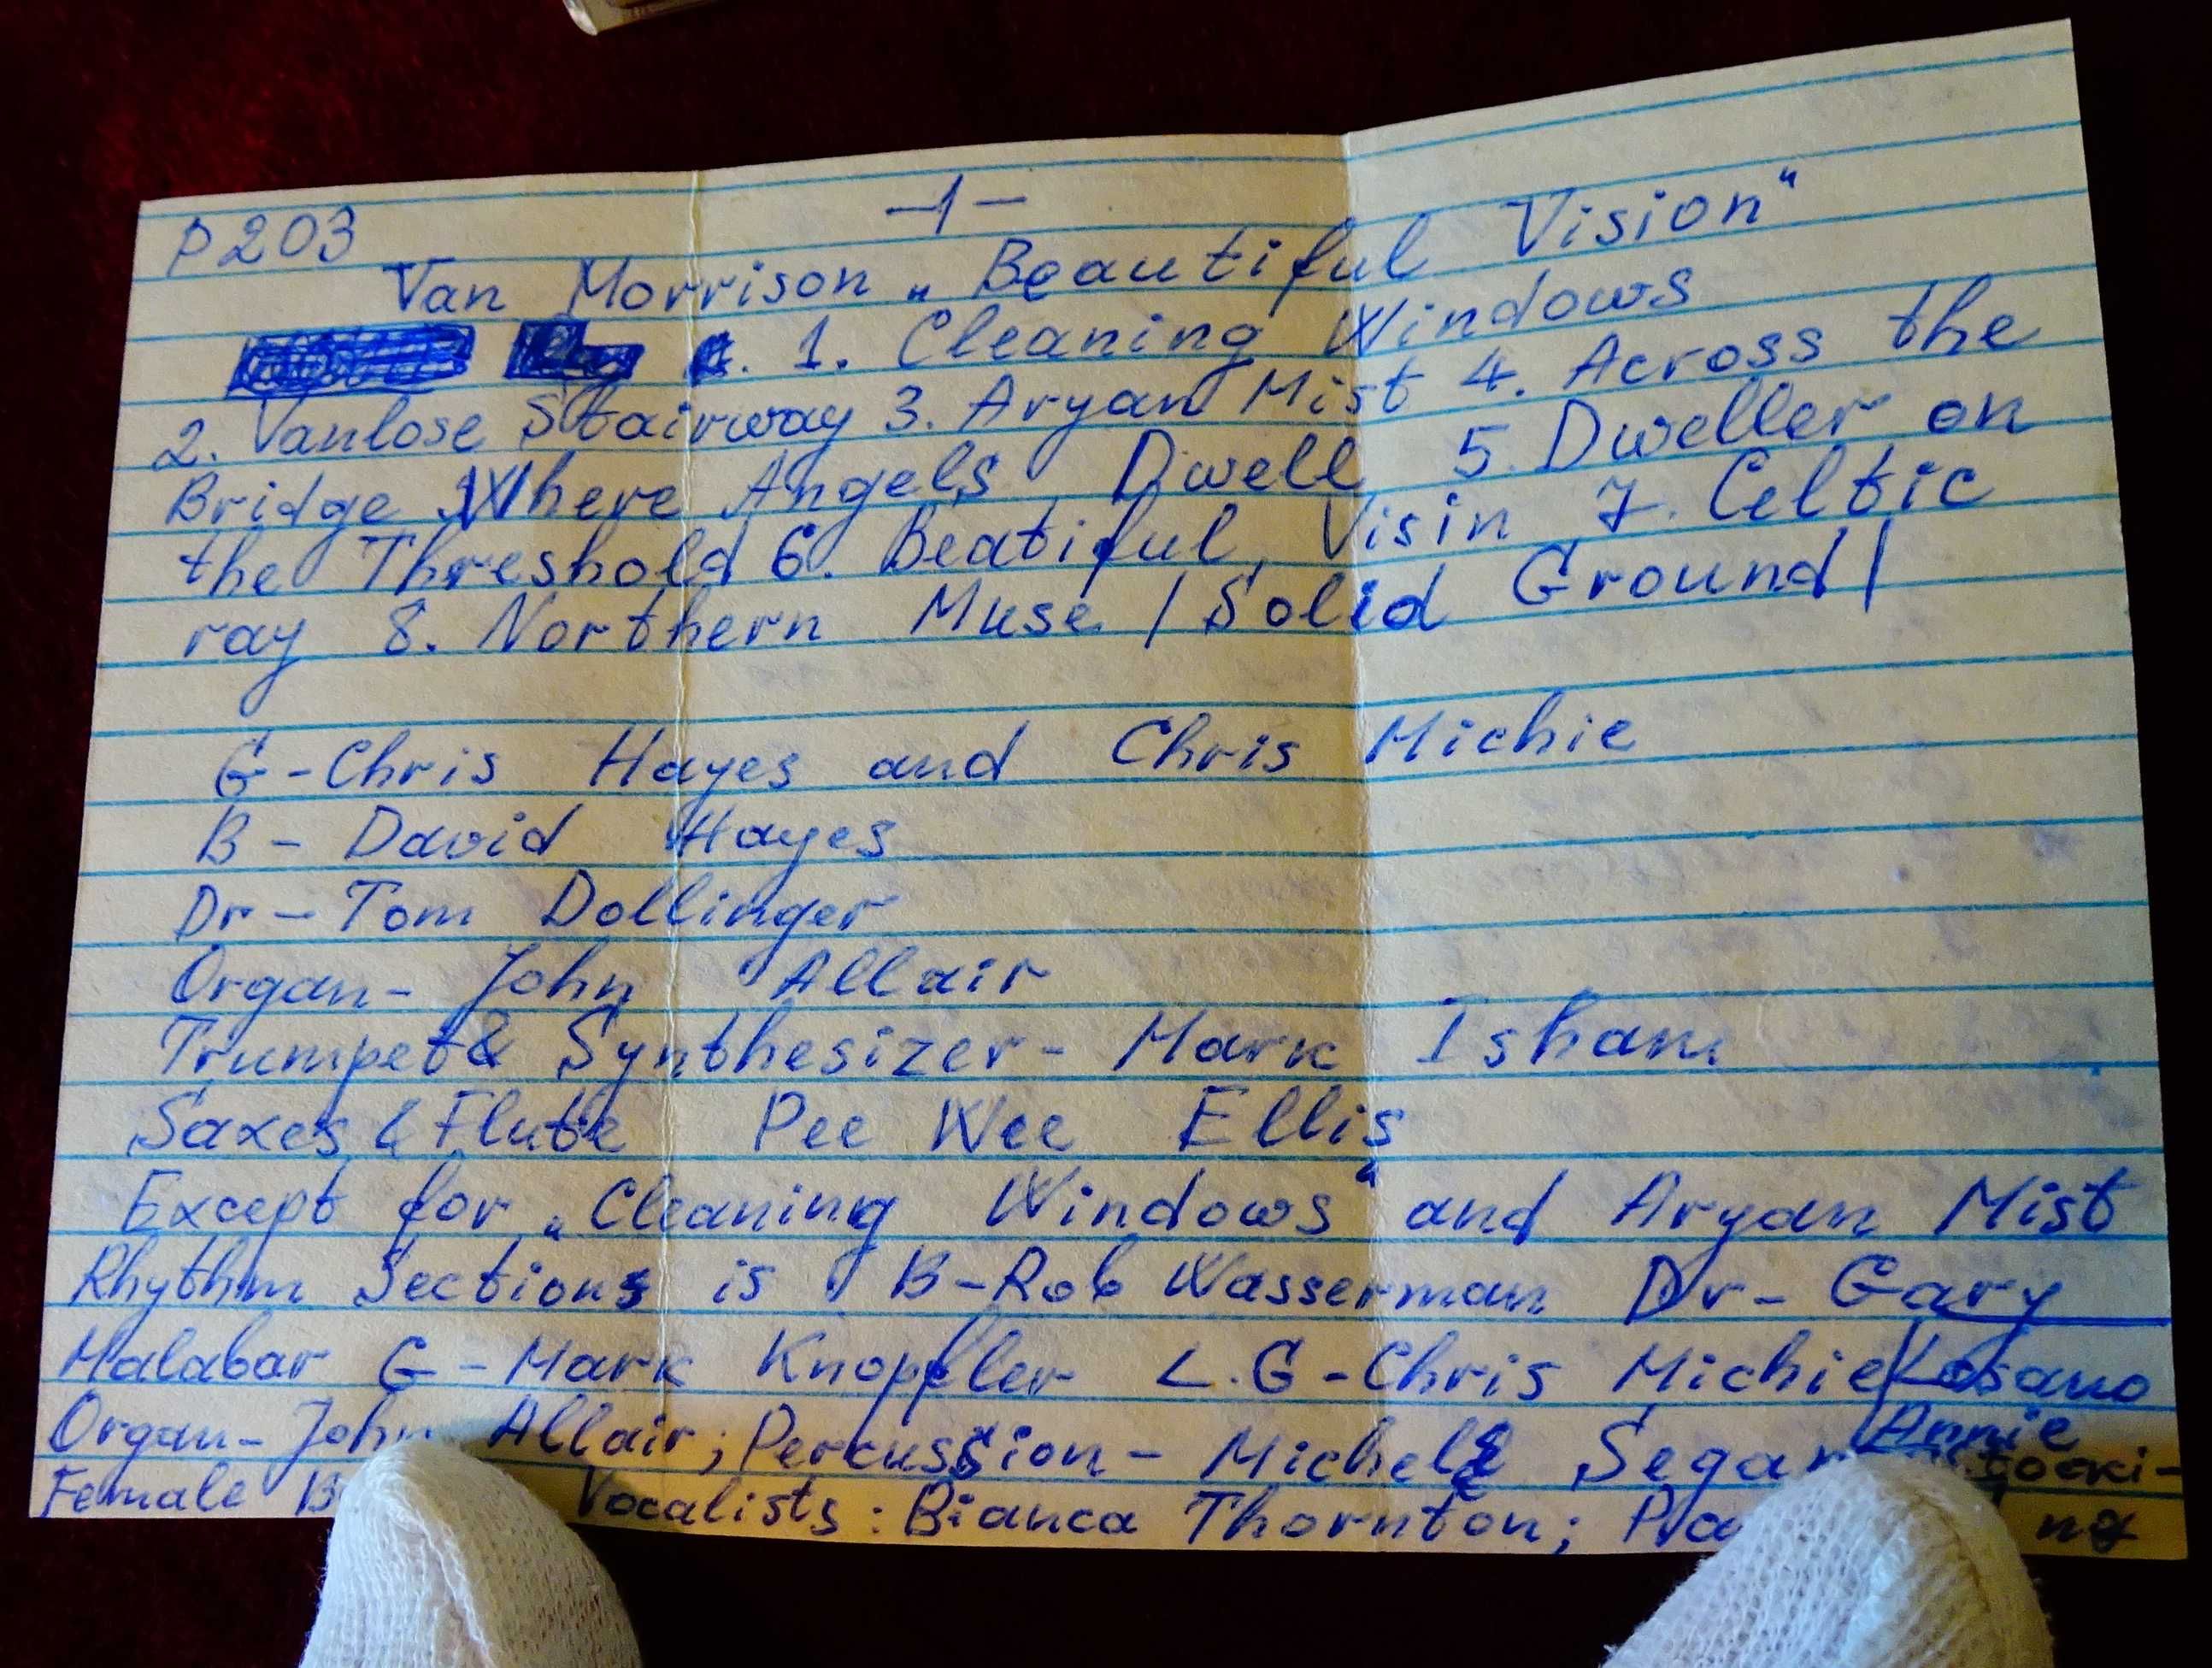 P203 -1-
Van Morrison „Beautiful Vision“
1. Cleaning Windows
2. Vanlose Stairway 3. Aryan Mist 4. Across the
Bridge Where Angels Dwell 5. Dweller on
the Threshold 6. Beatiful Visin 7. Celtic
ray 8. Northern Muse /Solid Ground/
G-Chris Hayes and Chris Michie
B - David Hayes
Dr - Tom Dollinger
Organ- John Allair
Trumpet & Synthesizer- Mark Isham
Saxes & Flute Pee Wee Ellis
Except for „Cleaning Windows“ and Aryan Mist
Rhythm Sections is B-Rob Wasserman Dr- Gary
Malabar G-Mark Knopfler L.G-Chris Michie
Organ- John Allair; Percussion- Michele Segan
Female Vocalists: Bianca Thornton;
Annie